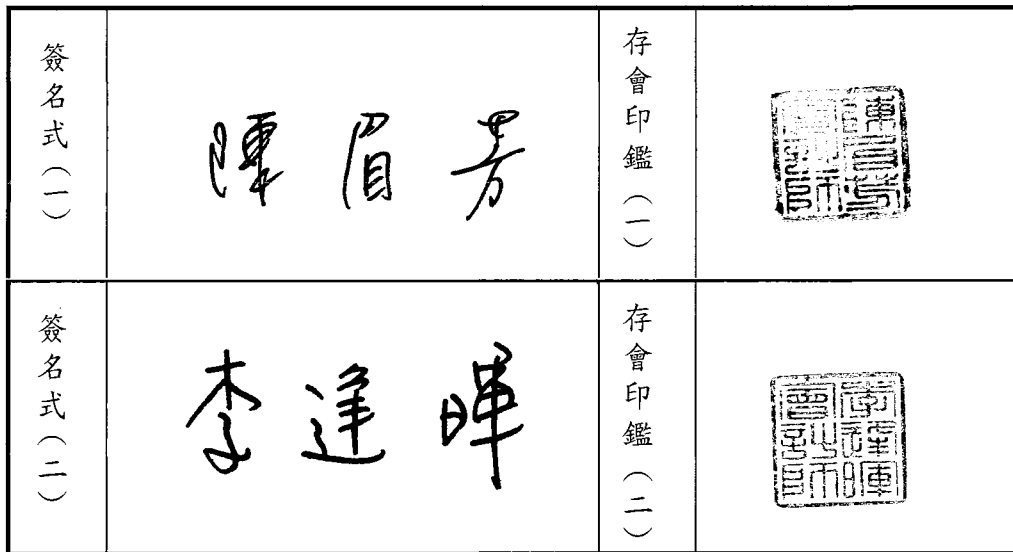 簽名式（一）
陳眉芳
存會印鑑（一）
陳眉芳
會計師
簽名式（二）
李逢暉
存會印鑑（二）
李逢暉
會計師